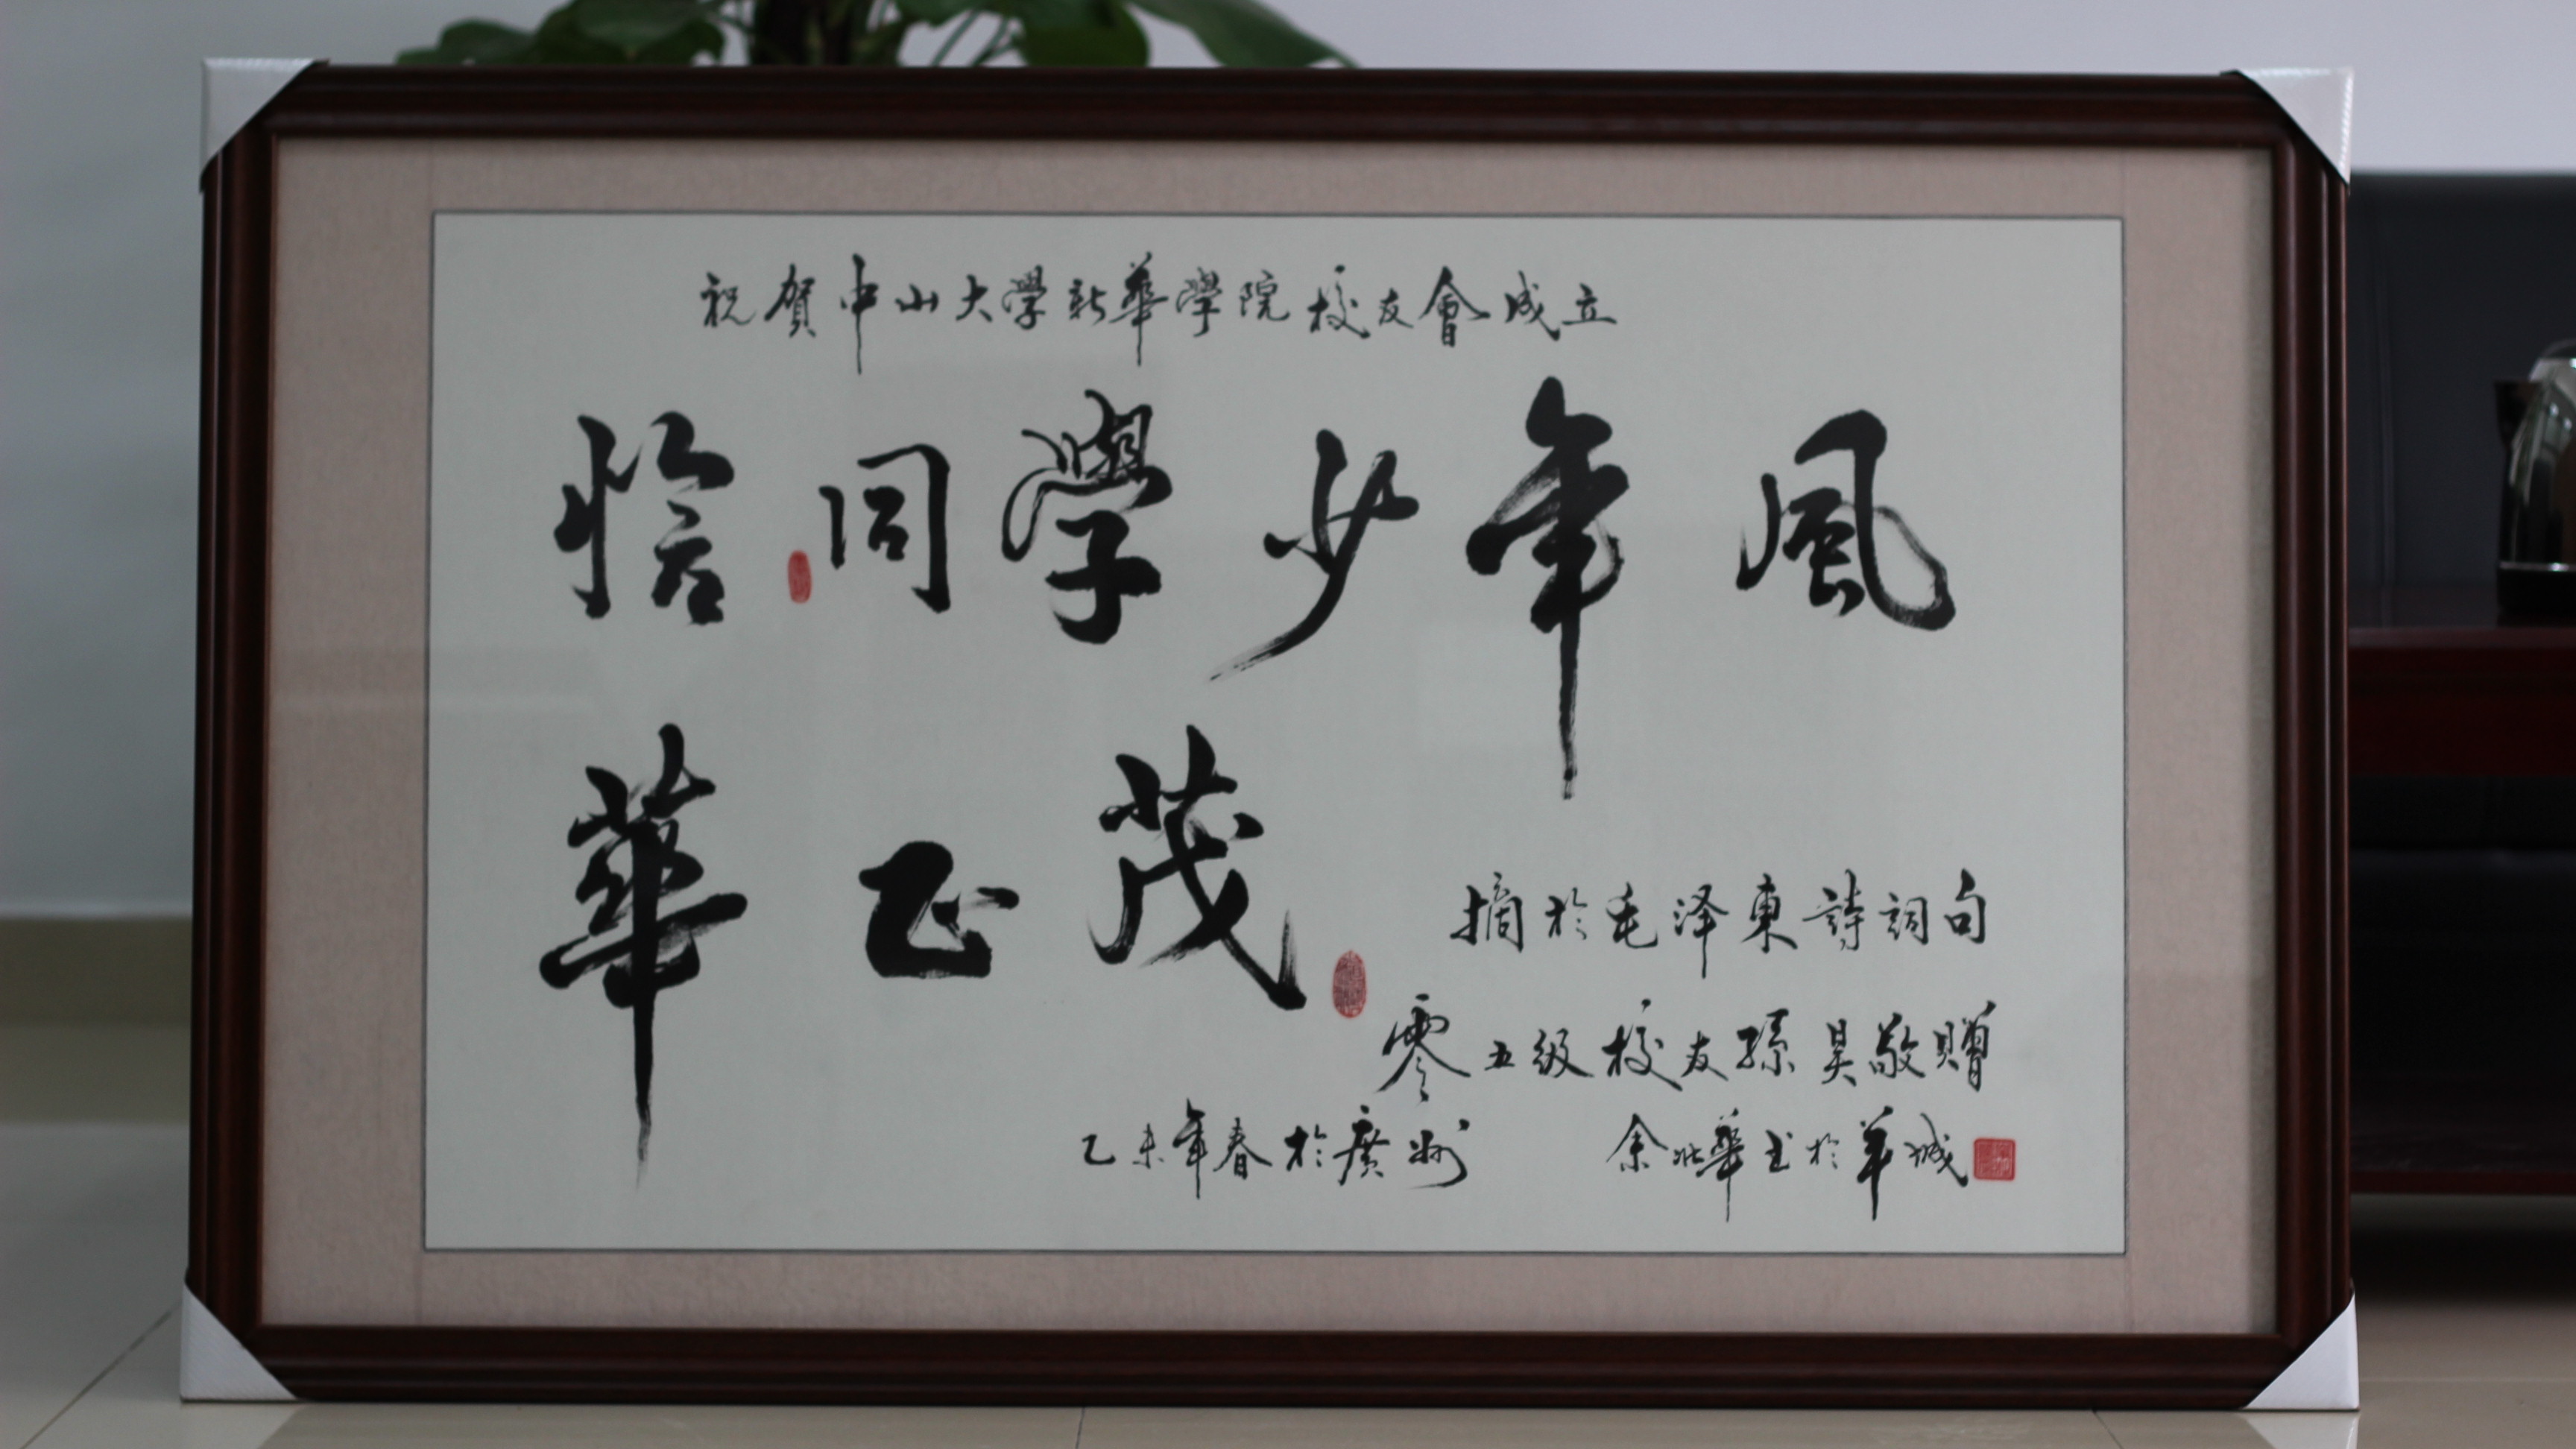 祝賀中山大學新華學院校友會成立
恰同學少年風
華正茂
摘於毛泽東詩詞句
零五级校友孫昊敬贈
乙未年春於廣州
余北華书於羊城